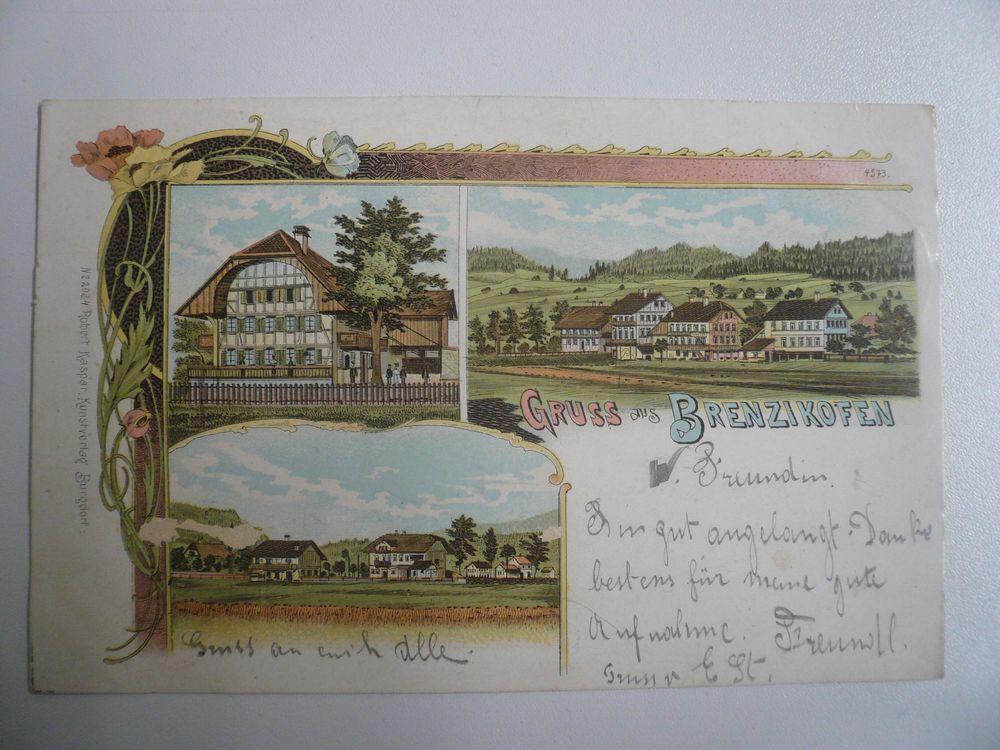 4573.
GRUSS aus BRENZIKOFEN
W. Freundin.
Bin gut angelangt. Danke
bestens für meine gute
Aufnahme. Freundl.
Gruss v E St.
Gruss an euch Alle.
Robert Kaspar. Kunstverlag Burgdorf.